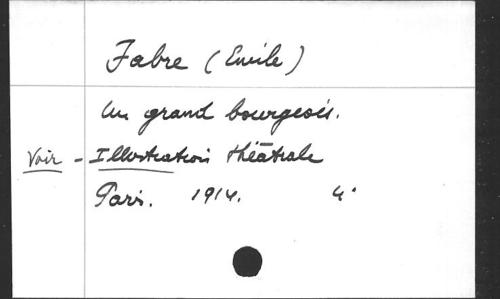 Fabre (Emile)
Un grand bourgeois.
Voir - Illustration théâtrale
Paris. 1914. 4°